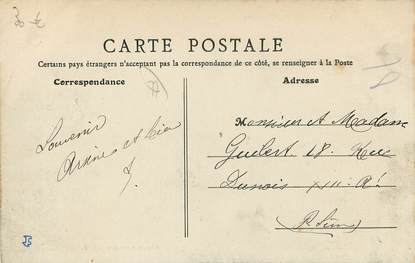 30 €
CARTE POSTALE
Certains pays étrangers n'acceptant pas la correspondance de ce côté, se renseigner à la Poste
Correspondance
Adresse
Souvenir
Monsieur et Madame
Guilert 18. Rue
Dunois XIII. Ar